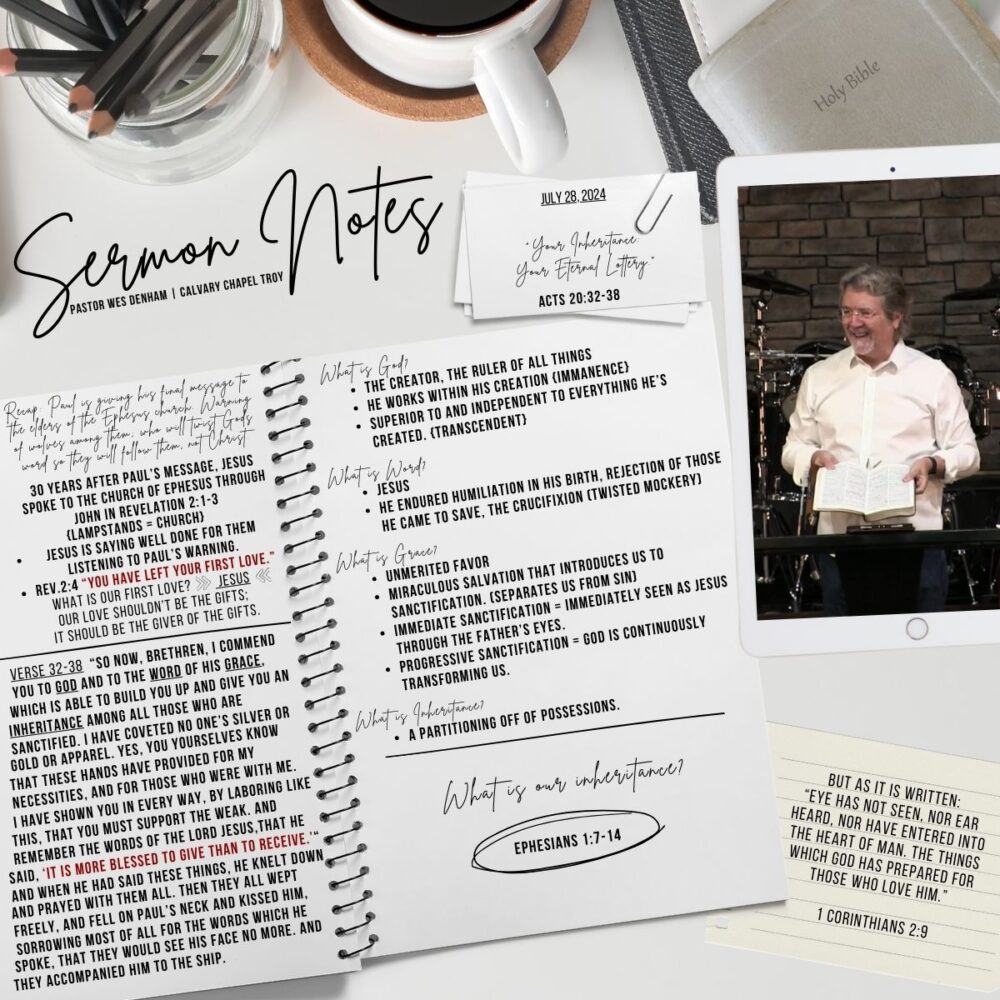 Holy Bible
Sermon Notes
PASTOR WES DENHAM | CALVARY CHAPEL TROY
JULY 28, 2024
"Your Inheritance:
Your Eternal Lottery"
ACTS 20:32-38
Recap, Paul is giving his final message to
the elders of the Ephesus church. Warning
of wolves among them, who will twist Gods
word so they will follow them, not Christ.
30 YEARS AFTER PAUL'S MESSAGE, JESUS
SPOKE TO THE CHURCH OF EPHESUS THROUGH
JOHN IN REVELATION 2:1-3
{LAMPSTANDS = CHURCH}
• JESUS IS SAYING WELL DONE FOR THEM
LISTENING TO PAUL'S WARNING.
• REV.2:4 "YOU HAVE LEFT YOUR FIRST LOVE."
WHAT IS OUR FIRST LOVE? >> JESUS <<
OUR LOVE SHOULDN'T BE THE GIFTS;
IT SHOULD BE THE GIVER OF THE GIFTS.
VERSE 32-38 "SO NOW, BRETHREN, I COMMEND
YOU TO GOD AND TO THE WORD OF HIS GRACE,
WHICH IS ABLE TO BUILD YOU UP AND GIVE YOU AN
INHERITANCE AMONG ALL THOSE WHO ARE
SANCTIFIED. I HAVE COVETED NO ONE'S SILVER OR
GOLD OR APPAREL. YES, YOU YOURSELVES KNOW
THAT THESE HANDS HAVE PROVIDED FOR MY
NECESSITIES, AND FOR THOSE WHO WERE WITH ME.
I HAVE SHOWN YOU IN EVERY WAY, BY LABORING LIKE
THIS, THAT YOU MUST SUPPORT THE WEAK. AND
REMEMBER THE WORDS OF THE LORD JESUS,THAT HE
SAID, 'IT IS MORE BLESSED TO GIVE THAN TO RECEIVE.'"
AND WHEN HE HAD SAID THESE THINGS, HE KNELT DOWN
AND PRAYED WITH THEM ALL. THEN THEY ALL WEPT
FREELY, AND FELL ON PAUL'S NECK AND KISSED HIM,
SORROWING MOST OF ALL FOR THE WORDS WHICH HE
SPOKE, THAT THEY WOULD SEE HIS FACE NO MORE. AND
THEY ACCOMPANIED HIM TO THE SHIP.
What is God?
• THE CREATOR, THE RULER OF ALL THINGS
• HE WORKS WITHIN HIS CREATION {IMMANENCE}
• SUPERIOR TO AND INDEPENDENT TO EVERYTHING HE'S
CREATED. {TRANSCENDENT}
What is Word?
• JESUS
• HE ENDURED HUMILIATION IN HIS BIRTH, REJECTION OF THOSE
HE CAME TO SAVE, THE CRUCIFIXION {TWISTED MOCKERY}
What is Grace?
• UNMERITED FAVOR
• MIRACULOUS SALVATION THAT INTRODUCES US TO
SANCTIFICATION. {SEPARATES US FROM SIN}
• IMMEDIATE SANCTIFICATION = IMMEDIATELY SEEN AS JESUS
THROUGH THE FATHER'S EYES.
• PROGRESSIVE SANCTIFICATION = GOD IS CONTINUOUSLY
TRANSFORMING US.
What is Inheritance?
• A PARTITIONING OFF OF POSSESSIONS.
What is our inheritance?
EPHESIANS 1:7-14
BUT AS IT IS WRITTEN:
"EYE HAS NOT SEEN, NOR EAR
HEARD, NOR HAVE ENTERED INTO
THE HEART OF MAN. THE THINGS
WHICH GOD HAS PREPARED FOR
THOSE WHO LOVE HIM."
1 CORINTHIANS 2:9